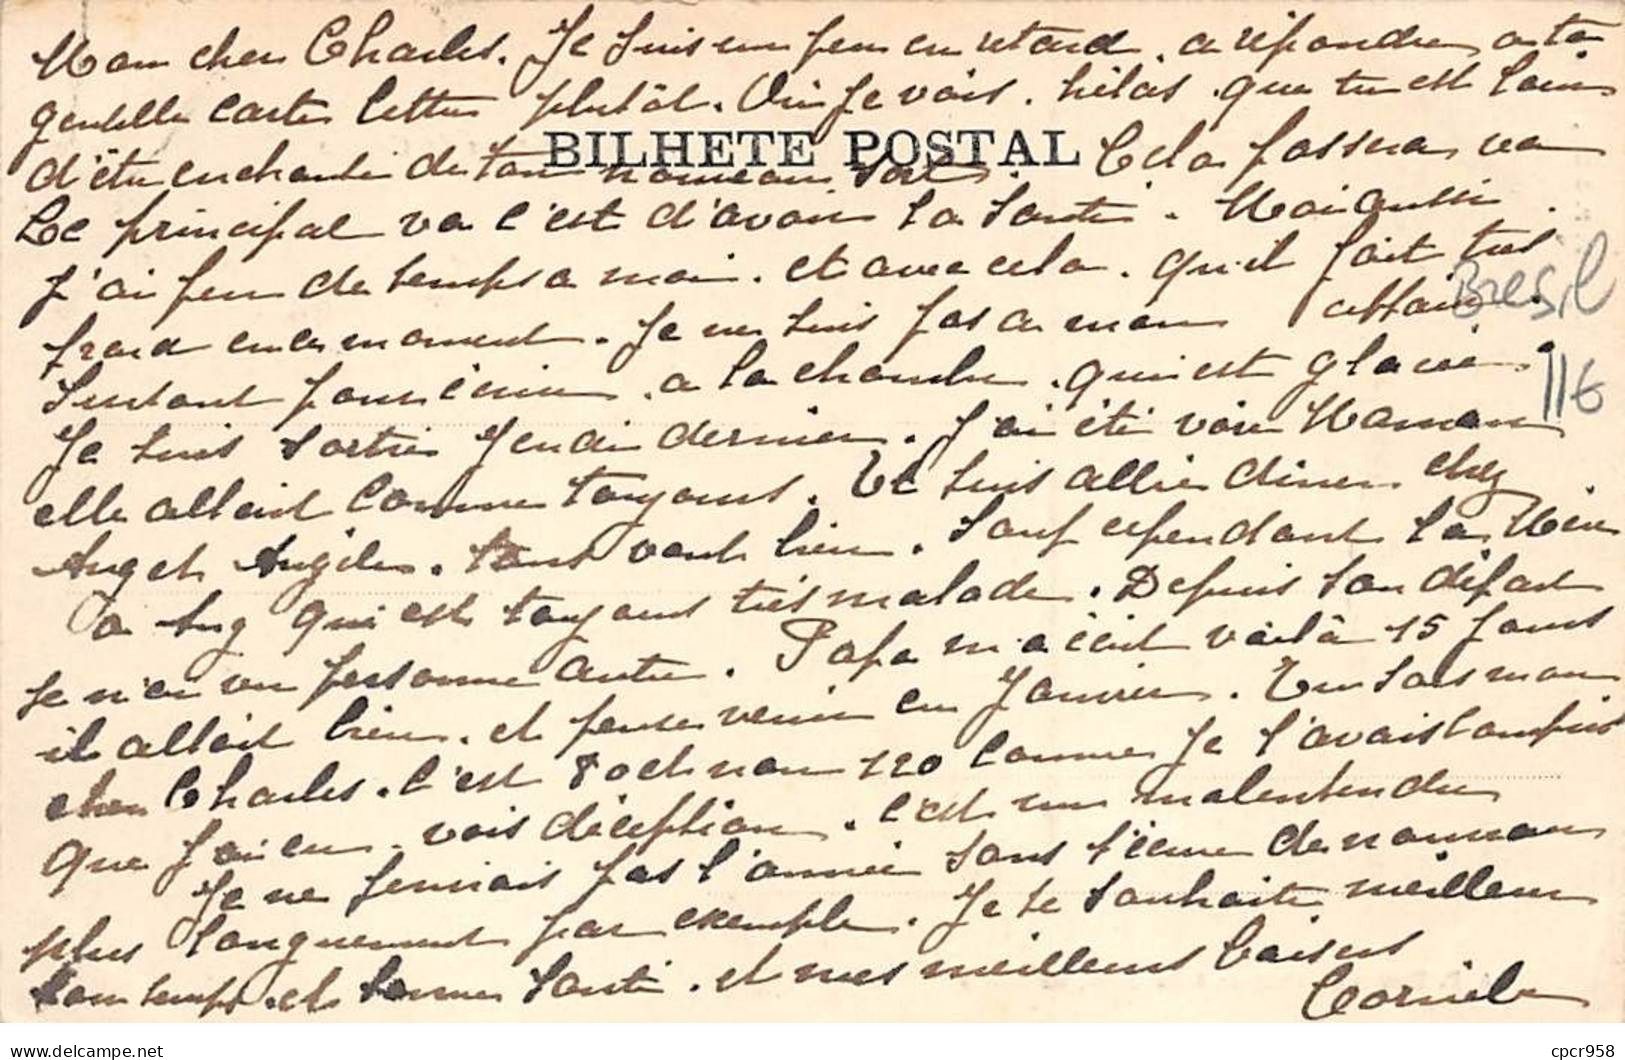 Mon cher Charles. Je suis un peu en retard. a répondre a ta
gentille carte lettre plutôt. Oui je vois. hélas. que tu est loin
BILHETE POSTAL
d'être enchanté de ton nouveau sort. Cela passera va
Le principal va c'est d'avoir la santé. Moi aussi.
j'ai peu de temps a moi. et avec cela. qu'il fait très
Bresil
froid en ce moment. Je ne suis pas a mon affaire.
surtout pour écrire. a la chambre. qui est glacée.
11€
Je suis sortie Jeudi dernier. J'ai été voir Maman
elle allait comme toujours. Et suis allée diner chez
Ange et Angèle. tout vont bien. Sauf cependant la Mère
a Ang qui est toujours très malade. Depuis ton départ
je n'ai vu personne autre. Papa m'a écrit voilà 15 jours
il allait bien. et pense venir en Janvier. Tu sais mon
cher Charles. c'est 80 et non 120 comme je l'avais compris
que j'ai eu. vois déception. c'est un malentendu
Je ne finirais pas l'année sans t'écrire de nouveau
plus longuement par exemple. Je te souhaite meilleur
temps. et bonne santé. et mes meilleurs baisers